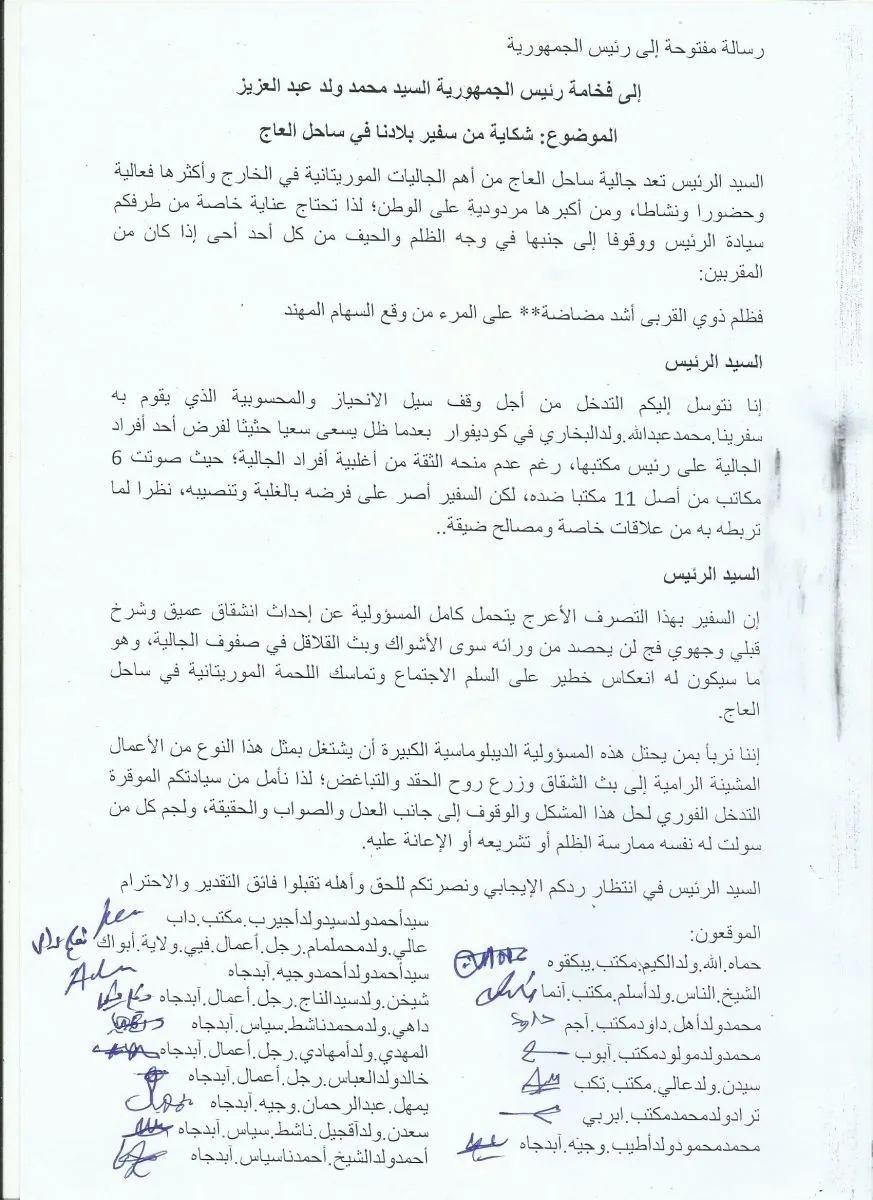 رسالة مفتوحة إلى رئيس الجمهورية
إلى فخامة رئيس الجمهورية السيد محمد ولد عبد العزيز
الموضوع: شكاية من سفير بلادنا في ساحل العاج
السيد الرئيس تعد جالية ساحل العاج من أهم الجاليات الموريتانية في الخارج وأكثرها فعالية
وحضورا ونشاطا، ومن أكبرها مردودية على الوطن؛ لذا تحتاج عناية خاصة من طرفكم
سيادة الرئيس ووقوفا إلى جنبها في وجه الظلم والحيف من كل أحد أحى إذا كان من
المقربين:
فظلم ذوي القربى أشد مضاضة** على المرء من وقع السهام المهند
السيد الرئيس
إنا نتوسل إليكم التدخل من أجل وقف سيل الانحياز والمحسوبية الذي يقوم به
سفرينا.محمدعبدالله.ولدالبخاري في كوديفوار بعدما ظل يسعى سعيا حثيثا لفرض أحد أفراد
الجالية على رئيس مكتبها، رغم عدم منحه الثقة من أغلبية أفراد الجالية؛ حيث صوتت 6
مكاتب من أصل 11 مكتبا ضده، لكن السفير أصر على فرضه بالغلبة وتنصيبه، نظرا لما
تربطه به من علاقات خاصة ومصالح ضيقة..
السيد الرئيس
إن السفير بهذا التصرف الأعرج يتحمل كامل المسؤولية عن إحداث انشقاق عميق وشرخ
قبلي وجهوي فج لن يحصد من ورائه سوى الأشواك وبث القلاقل في صفوف الجالية، وهو
ما سيكون له انعكاس خطير على السلم الاجتماع وتماسك اللحمة الموريتانية في ساحل
العاج.
إننا نربأ بمن يحتل هذه المسؤولية الديبلوماسية الكبيرة أن يشتغل بمثل هذا النوع من الأعمال
المشينة الرامية إلى بث الشقاق وزرع روح الحقد والتباغض؛ لذا نأمل من سيادتكم الموقرة
التدخل الفوري لحل هذا المشكل والوقوف إلى جانب العدل والصواب والحقيقة، ولجم كل من
سولت له نفسه ممارسة الظلم أو تشريعه أو الإعانة عليه.
السيد الرئيس في انتظار ردكم الإيجابي ونصرتكم للحق وأهله تقبلوا فائق التقدير والاحترام
الموقعون:
حماه.الله.ولدالكيم.مكتب.يبكقوه
الشيخ.الناس.ولدأسلم.مكتب.آنما
محمدولدأهل.داودمكتب.آجم
محمدولدمولودمكتب.آبوب
سيدن.ولدعالي.مكتب.تكب
ترادولدمحمدمكتب.ابربي
محمدمحمودولدأطيب.وجيه.آبدجاه
سيدأحمدولدسيدولدأجيرب.مكتب.داب
عالي.ولدمحملمام.رجل.أعمال.فيي.ولاية.أبواك
سيدأحمدولدأحمدوجيه.آبدجاه
شيخن.ولدسيدالناج.رجل.أعمال.آبدجاه
داهي.ولدمحمدناشط.سياس.آبدجاه
المهدي.ولدأمهادي.رجل.أعمال.آبدجاه
خالدولدالعباس.رجل.أعمال.آبدجاه
يمهل.عبدالرحمان.وجيه.آبدجاه
سعدن.ولدآقجيل.ناشط.سياس.آبدجاه
أحمدولدالشيخ.أحمدناسياس.آبدجاه